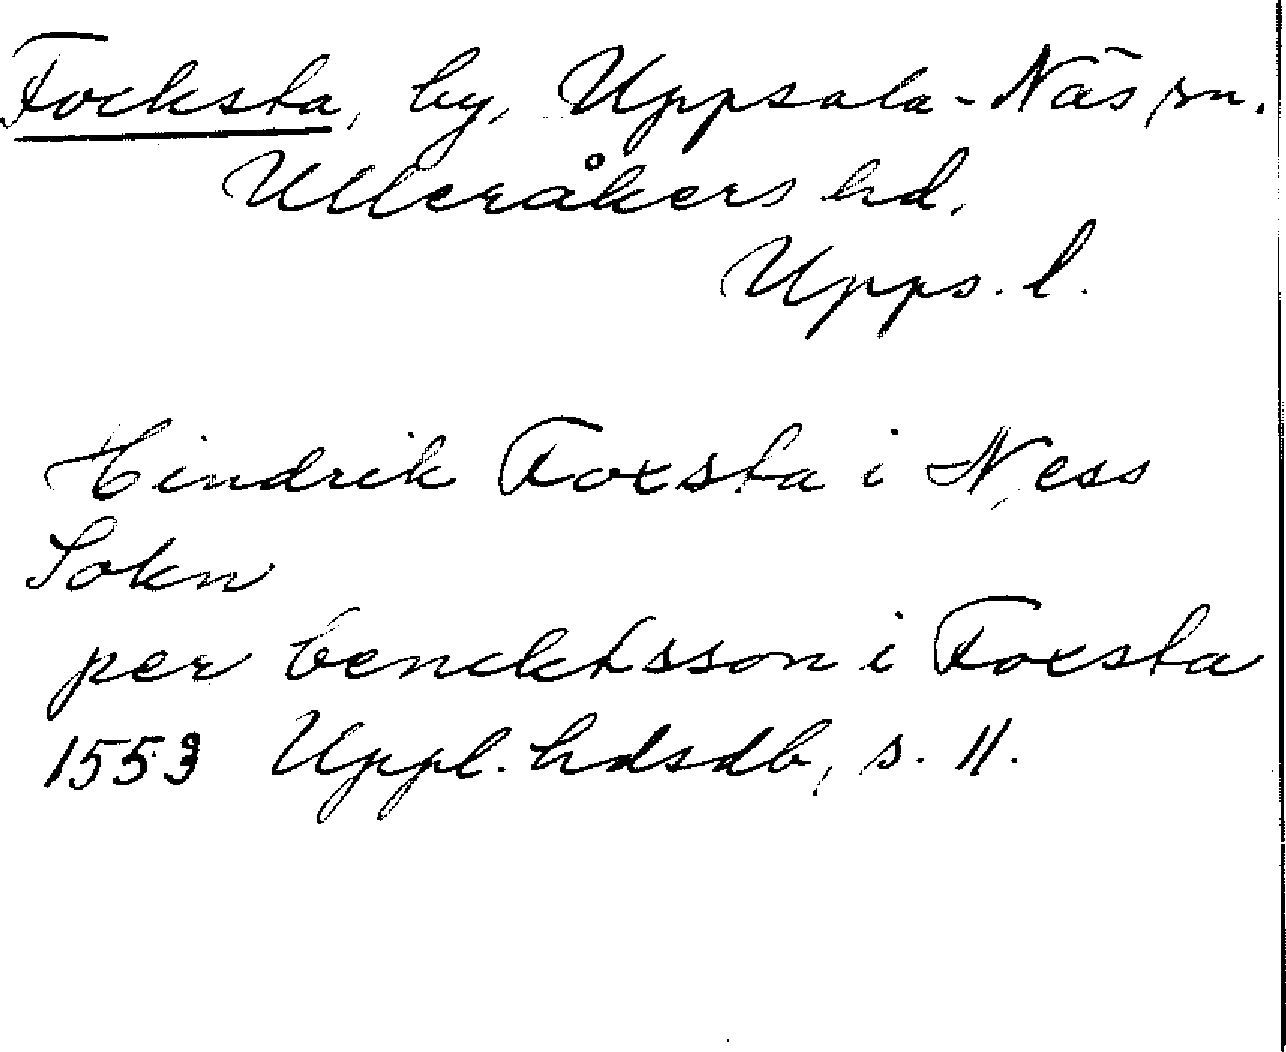 Focksta, by, Uppsala-Näs sn.
Ulleråkers hd.
Upps. l.
Hindrik Foxsta i Ness
Sokn
per bencktsson i Foxsta
1553 Uppl. hdsdb, s. 11.